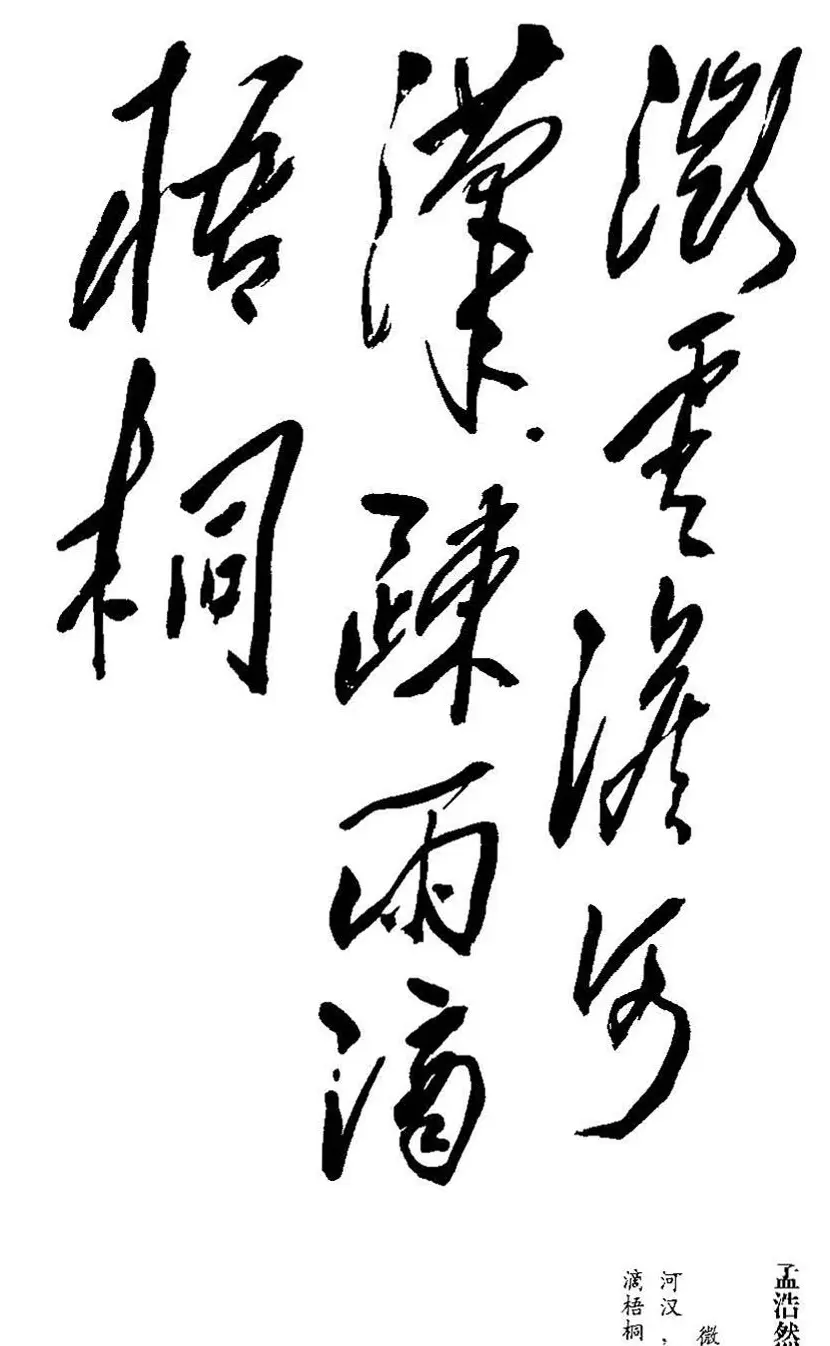 微云澹河
漢.疎雨滴
梧桐
孟浩然
微
河汉，
滴梧桐